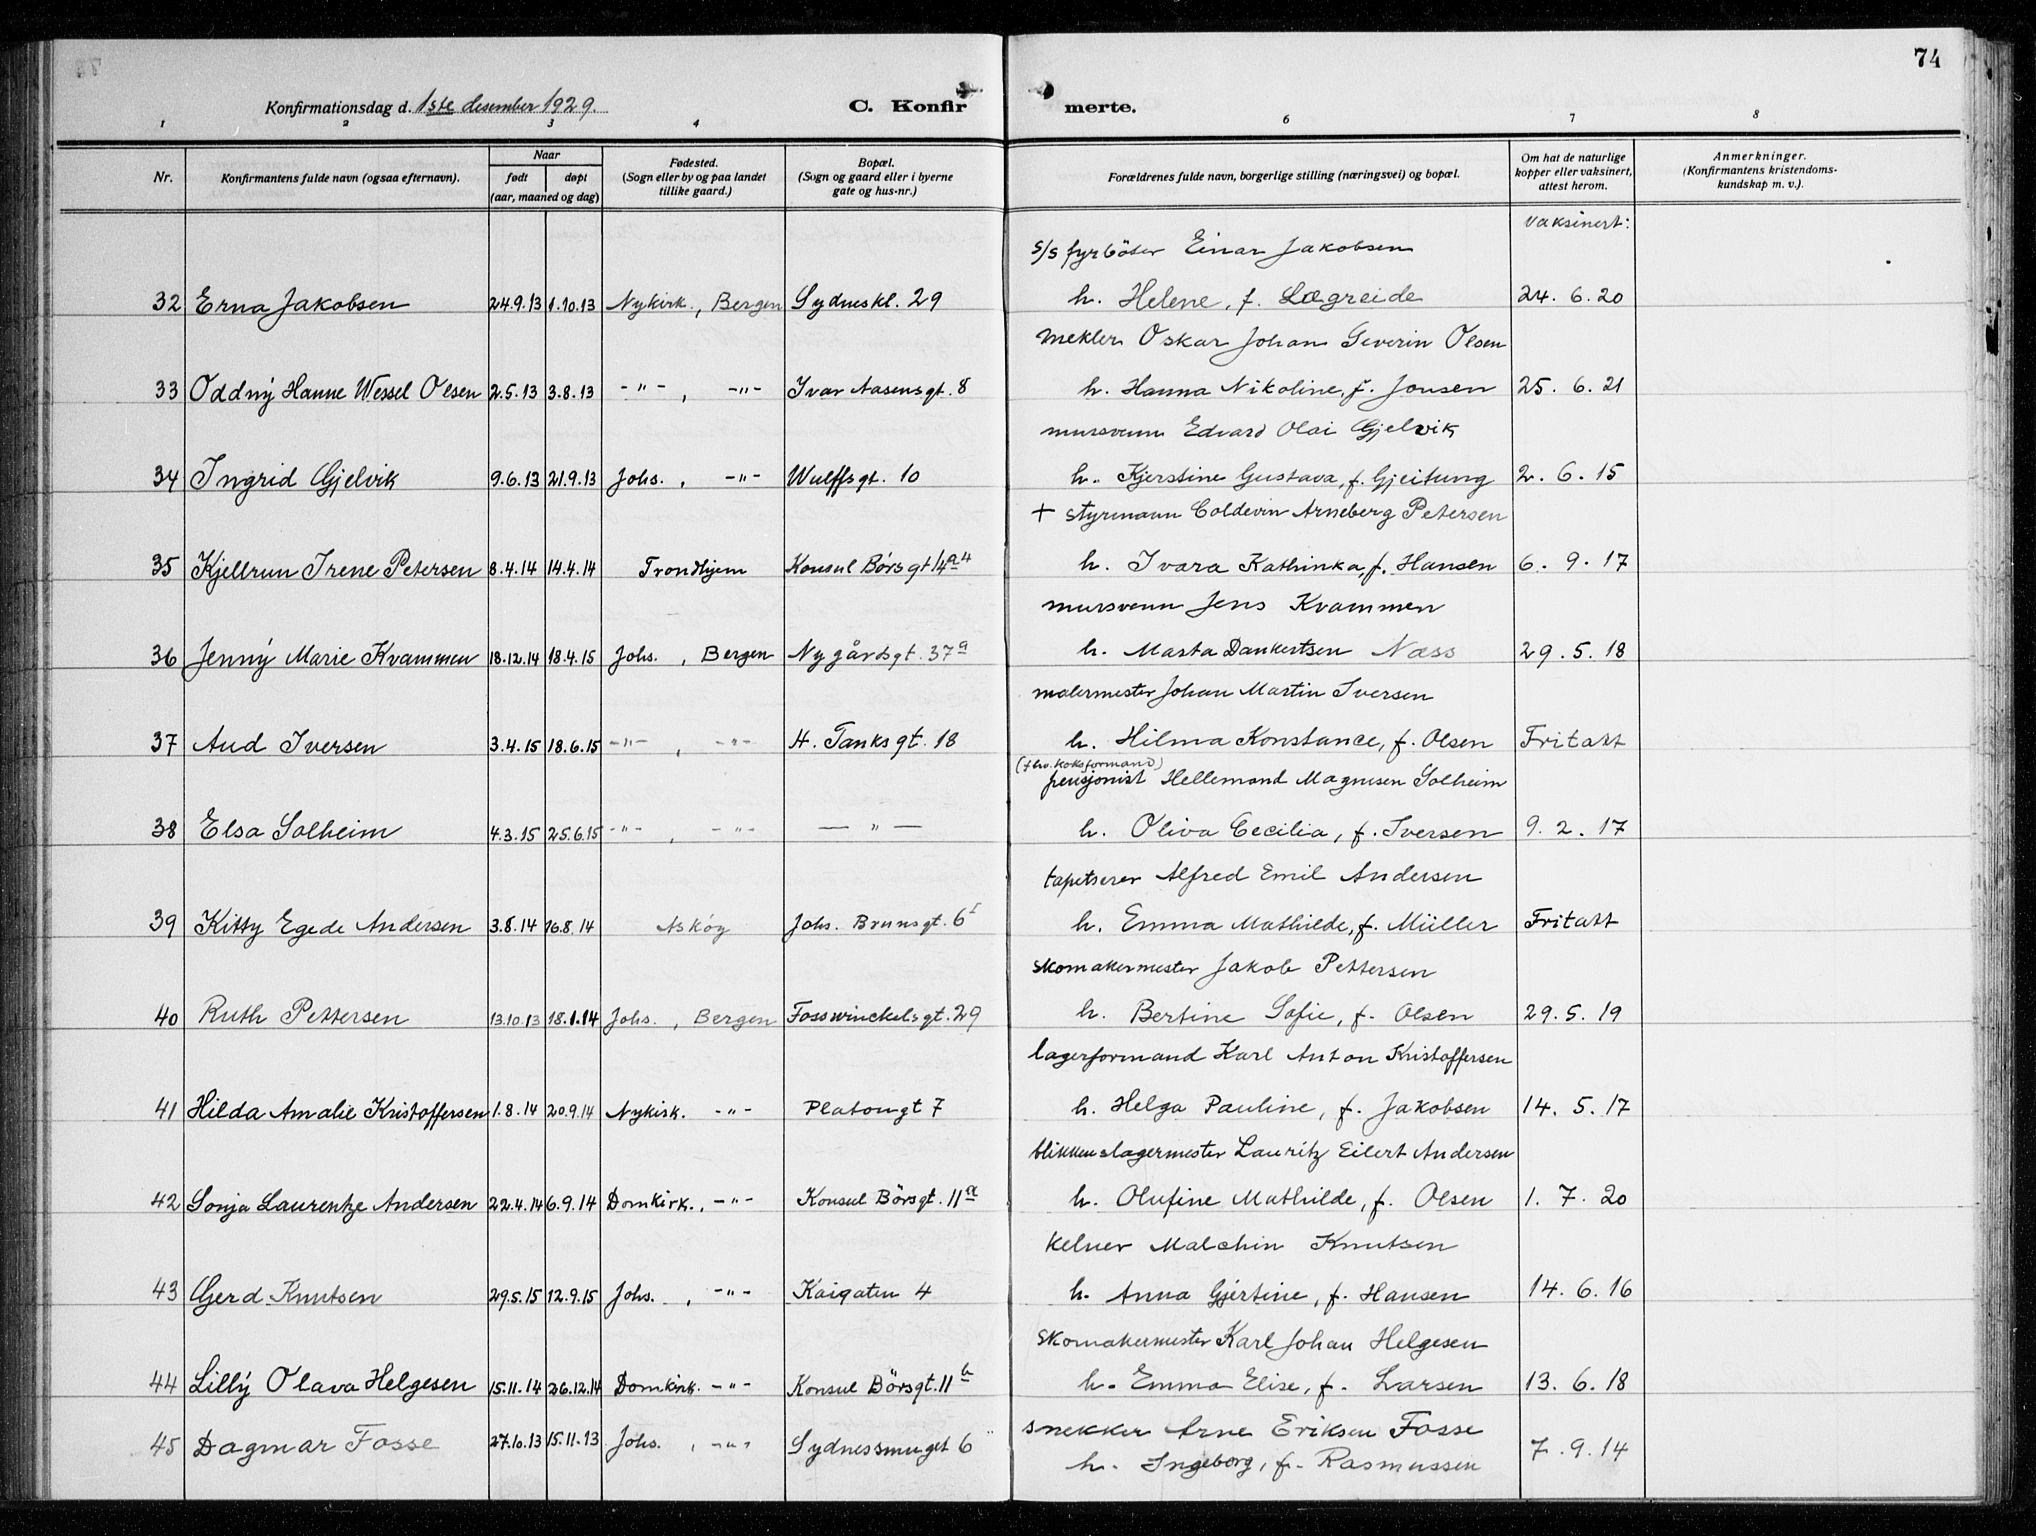 74
Konfirmationsdag d. 1ste desember 1929.
C. Konfirmerte.
1 2 3 4 6 7 8
Nr.
Konfirmantens fulde navn (ogsaa efternavn).
Naar
født
døpt
(aar, maaned og dag)
Fødested.
(Sogn eller by og paa landet
tillike gaard.)
Bopæl.
(Sogn og gaard eller i byerne
gate og hus-nr.)
Forældrenes fulde navn, borgerlige stilling (næringsvei) og bopæl.
Om hat de naturlige
kopper eller vaksinert,
attest herom.
Anmerkninger.
(Konfirmantens kristendoms-
kundskap m. v.).
vaksinert:
s/s fyrböter Einar Jakobsen
32 Erna Jakobsen 24.9.13 1.10.13 Nykirk., Bergen Sydneskl. 29 h. Helene, f. Lægreide 24. 6. 20
mekler Oskar Johan Severin Olsen
33 Oddný Hanne Wessel Olsen 2.5.13 3.8.13 -"-, -"- Ivar Aasensgt. 8 h. Hanna Nikoline, f. Jonsen 25. 6. 21
mursvenn Edvard Olai Gjelvik
34 Ingrid Gjelvik 9.6.13 21.9.13 Johs., -"- Wulffsgt. 10 h. Kjerstine Gustava, f. Gjeitung 2. 6. 15
+ styrmann Coldevin Arneberg Petersen
35 Kjellrun Irene Petersen 8.4.14 14.4.14 Trondhjem Konsul Börsgt 14 a 4 h. Ivara Kathinka, f. Hansen 6. 9. 17
mursvenn Jens Kvammen
36 Jenný Marie Kvammen 18.12.14 18.4.15 Johs., Bergen Nygårdsgt. 37a h. Marta Dankertsen Næss 29. 5. 18
malermester Johan Martin Iversen
37 Aud Iversen 3.4.15 18.6.15 -"-, -"- H. Tanksgt. 18 h. Hilma Konstance, f. Olsen Fritatt
(fhv. koksformand)
pensjonist Hellemand Magnusen Solheim
38 Elsa Solheim 4.3.15 25.6.15 -"-, -"- -"- h. Oliva Cecilia, f. Iversen 9. 2. 17
tapetserer Alfred Emil Andersen
39 Kitty Egede Andersen 3.8.14 16.8.14 Askøy Johs. Brunsgt. 6 I h. Emma Mathilde, f. Müller Fritatt
skomakermester Jakob Pettersen
40 Ruth Pettersen 13.10.13 18.1.14 Johs., Bergen Fosswinckelsgt. 29 h. Bertine Sofie, f. Olsen 29. 5. 19
lagerformand Karl Anton Kristoffersen
41 Hilda Amalie Kristoffersen 1.8.14 20.9.14 Nykirk. -"- Platougt 7 h. Helga Pauline, f. Jakobsen 14. 5. 17
blikkenslagermester Lauritz Eilert Andersen
42 Sonja Laurentze Andersen 22.4.14 6.9.14 Domkirk., -"- Konsul Börsgt. 11a h. Olufine Mathilde, f. Olsen 1. 7. 20
kelner Malchin Knutsen
43 Gjerd Knutsen 29.5.15 12.9.15 Johs., -"- Kaigaten 4 h. Anna Gjertine, f. Hansen 14. 6. 16
skomakermester Karl Johan Helgesen
44 Lillý Olava Helgesen 15.11.14 26.12.14 Domkirk. -"- Konsul Börsgt. 11b h. Emma Elise, f. Larsen 13. 6. 18
snekker Arne Eriksen Fosse
45 Dagmar Fosse 27.10.13 15.11.13 Johs., -"- Sydnessmuget 6 7. 9. 14
h. Ingeborg, f. Rasmussen